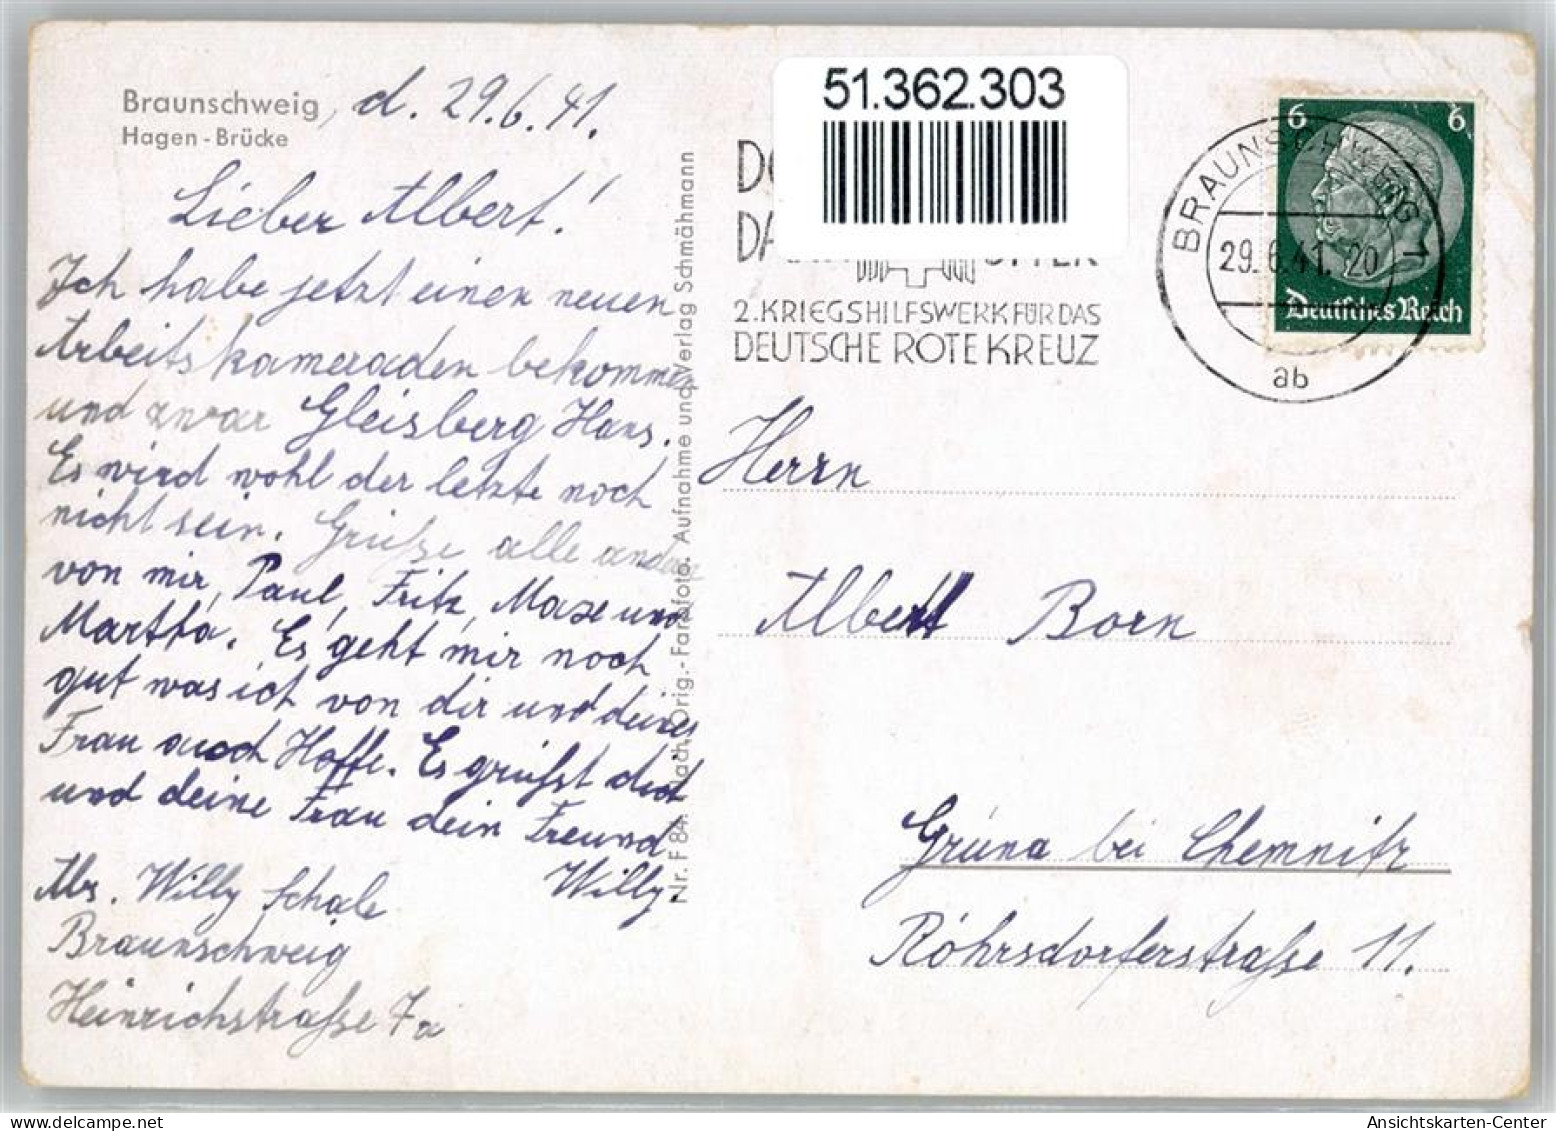 Braunschweig, d. 29.6.41.
Hagen - Brücke
Lieber Albert!
Ich habe jetzt einen neuen
Arbeitskameraden bekommen
und zwar Gleisberg Hans.
Es wird wohl der letzte noch
nicht sein. Grüße alle andere
von mir, Paul, Fritz, Maxe und
Martha. Es geht mir noch
gut was ich von dir und deiner
Frau auch Hoffe. Es grüßst dich
und deine Frau dein Freund
Willy.
Abs. Willy Schale
Braunschweig
Heinrichstraße 7a
Orig.-Farbfoto. Aufnahme und Verlag Schmähmann
Nr. F 84.
51.362.303
2. KRIEGSHILFSWERK FÜR DAS
DEUTSCHE ROTE KREUZ
BRAUNSCHWEIG 1
29.6.41. 20
ab
6 6
Deutsches Reich
Herrn
Albert Born
Grüna bei Chemnitz
Röhrsdorferstraße 11.
Ansichtskarten-Center